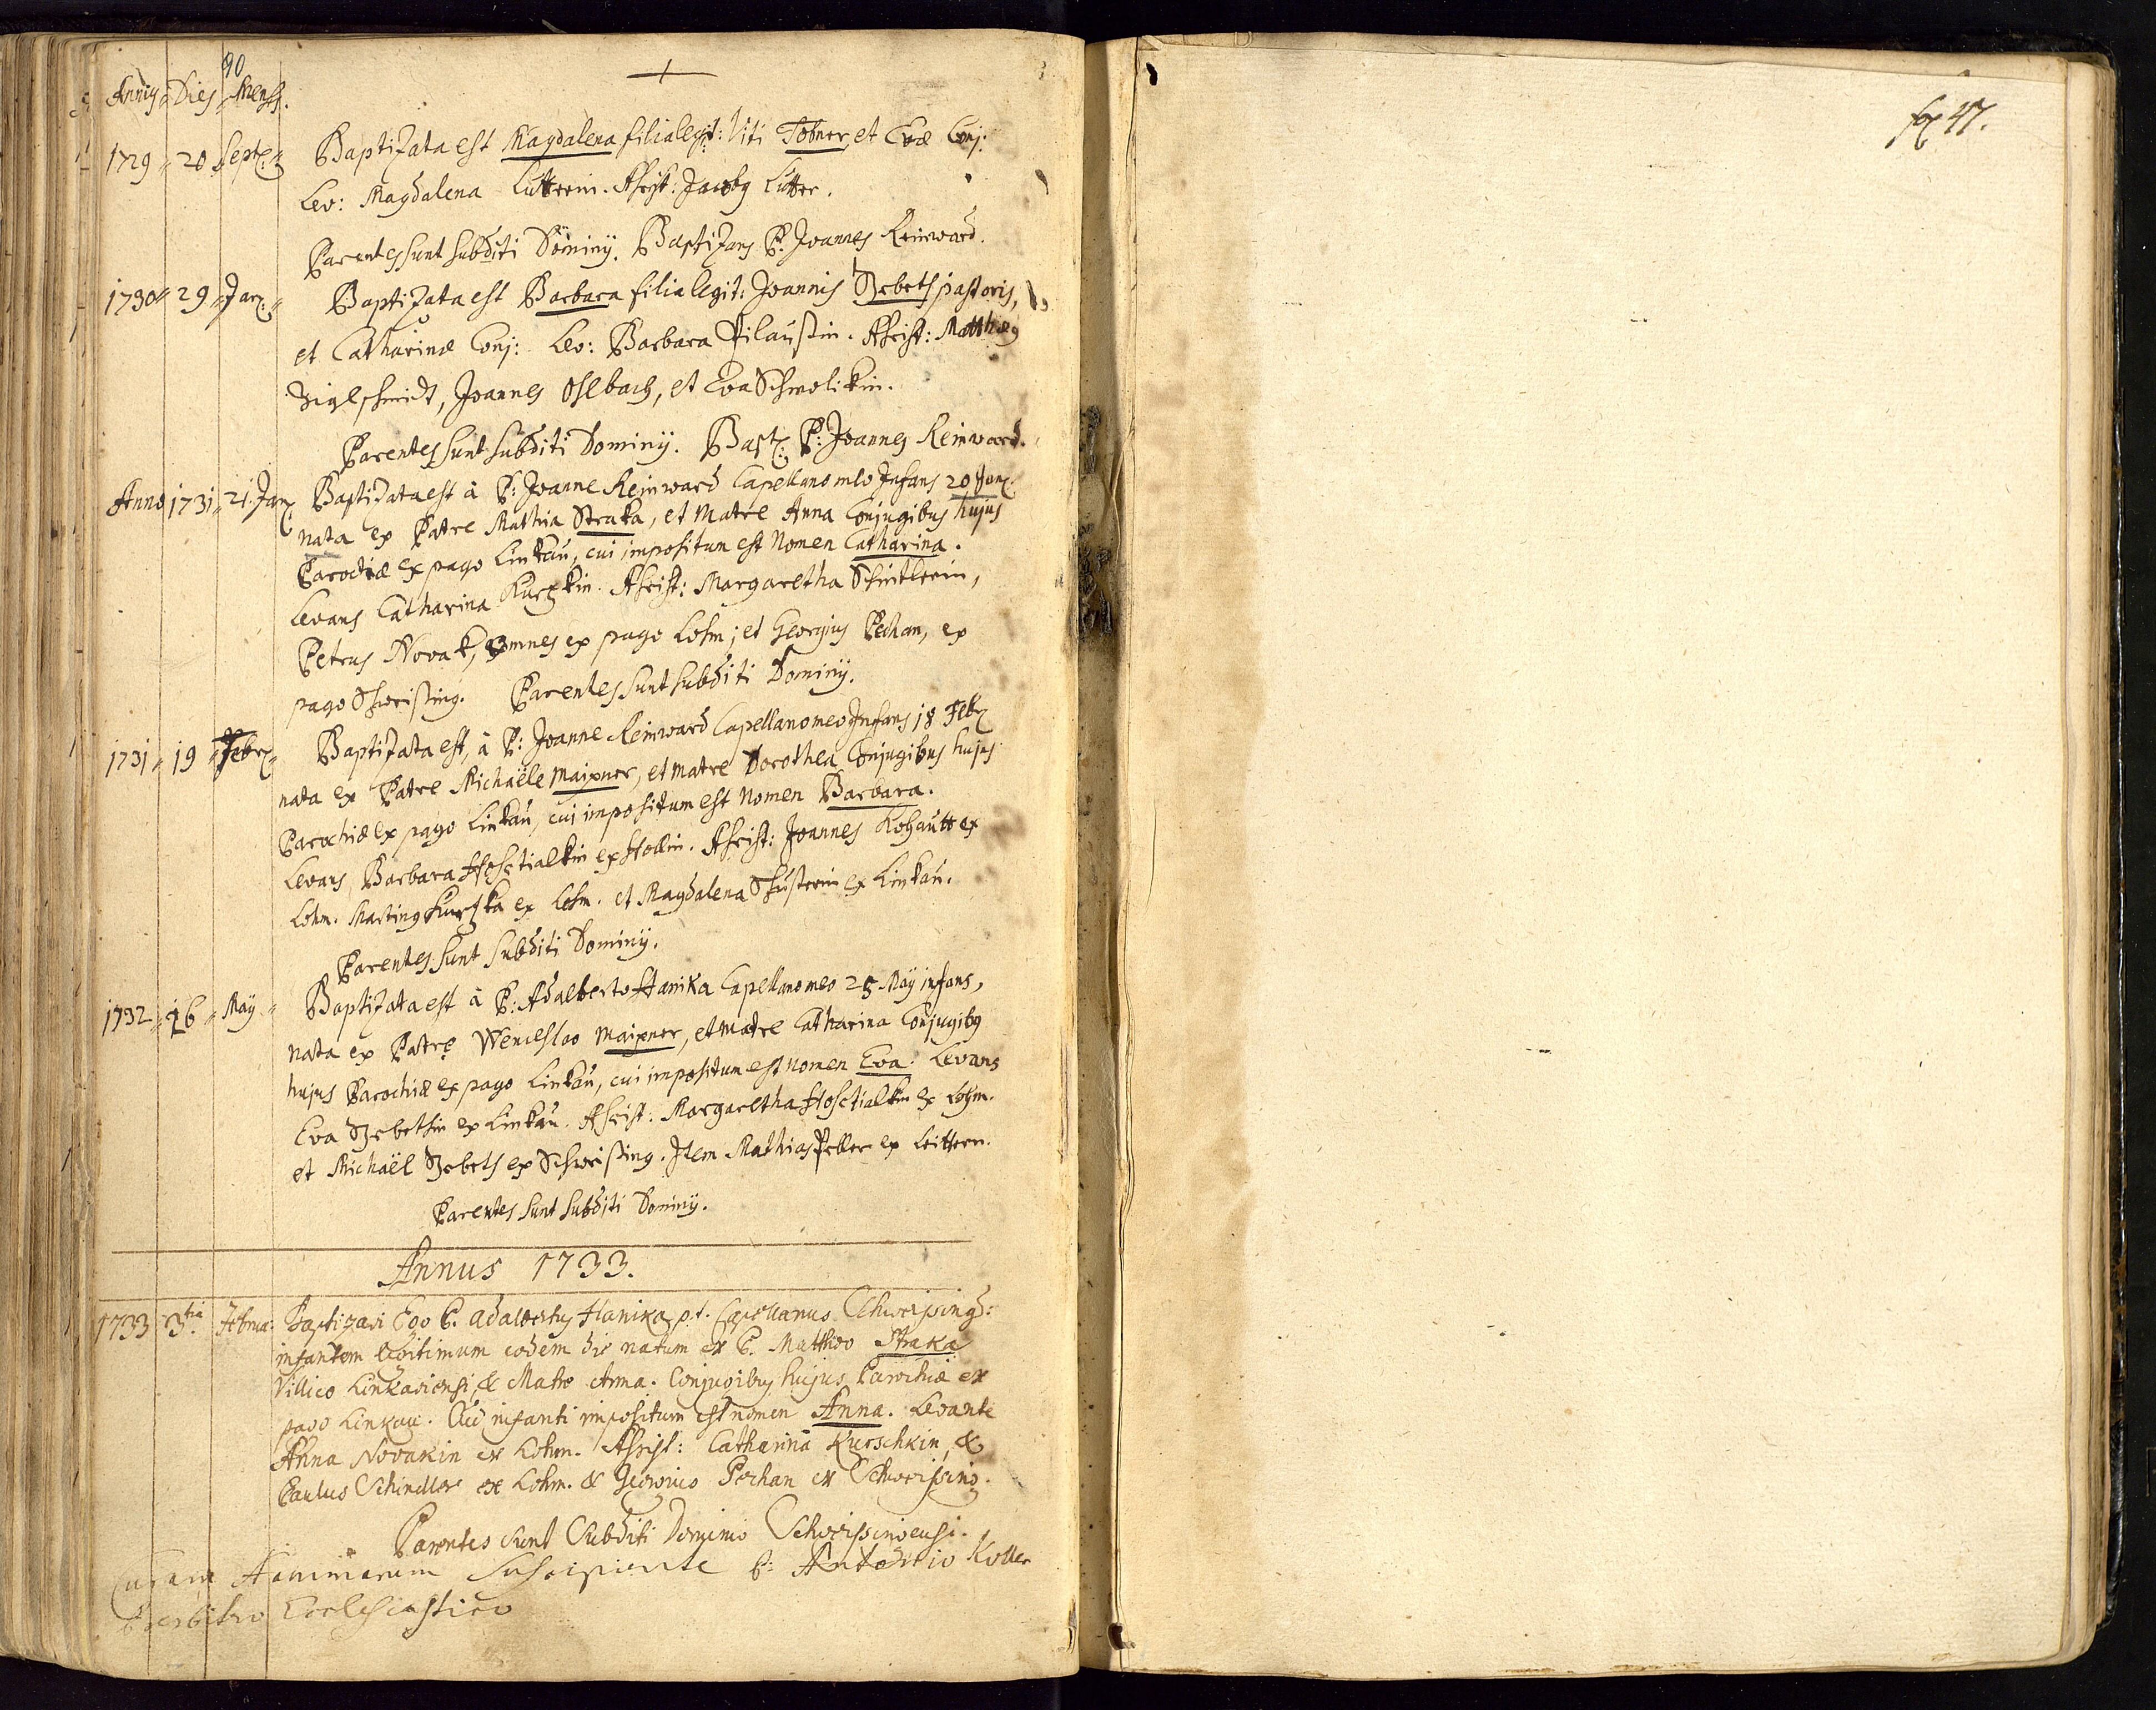 90
Annus Dies Mensis.
1729 20 Septe: Baptizata est Magdalena filia legit: Viti Tobner, et Evæ Conj:
Lev: Magdalena Lutterin. Assist: Jacobus Lutter.
Parentes sunt subditi Dominij. Baptizans P: Joannes Reinward.
1730 29 Jan: Baptizata est Barbara filia legit: Joannis Szebeth pastoris,
et Catharinæ Conj: Lev: Barbara Pilaußin. Assist: Matthæus
Ziglschmidt, Joannes Ohlbach, et Eva Schmolikin.
Parentes sunt subditi Dominij. Bapt: P: Joannes Reinward.
Anno 1731 21. Jan: Baptizata est à P: Joanne Reinward Capellano meo Infans 20 Jan:
nata ex Patre Mathia Straka, et Matre Anna Conjugibus hujus
Parochiæ ex pago Linkau, cui impositum est Nomen Catharina.
Levans Catharina Kurzkin. Assist: Margaretha Schintlerin,
Petrus Novak, omnes ex pago Lohm; et Georgius Pechan, ex
pago Schweißing. Parentes sunt subditi Dominij.
1731 19 Febr: Baptizata est, à P: Joanne Reinward Capellano meo Infans 18 Feb:
nata ex Patre Michaële Maixner, et Matre Dorothea Conjugibus hujus
Parochiæ ex pago Linkau, cui impositum est Nomen Barbara.
Levans Barbara Hosctialkin ex Hollin. Assist: Joannes Kohautt ex
Lohm. Martinus Kurzka ex Lohm. et Magdalena Schusterin ex Linkau.
Parentes sunt subditi Dominij.
1732 26 Maij Baptizata est à P: Adalberto Hanika Capellano meo 25 Maij infans,
nata ex Patre Wenceslao Maixner, et Matre Catharina Conjugibus
hujus Parochiæ ex pago Linkau, cui impositum est nomen Eva. Levans
Eva Szebethin ex Linkau. Assist: Margaretha Hosctialkin ex Lohm.
et Michaël Szebeth ex Schweißing. Item Mathias Peller ex Leittern.
Parentes sunt subditi Dominij.
Annus 1733.
1733 3tia Febrúa: Baptizavi Ego P. Adalbertus Hanika p.t. Capellanus Schweissing:
infantem legitimum eodem die natum ex P. Matthæo Straka
Villico Linkaviensi, & Matre Anna. Conjugibus hujus Parochiæ ex
pago Linkau. Cui infanti impositum est nomen Anna. Levante
Anna Novakin ex Lohm. Assist: Catharina Kurschkin, &
Paulus Schindler ex Lohm. & Georgius Pechan ex Schweissing.
Parentes sunt Subditi Dominio Schweissingensi.
Curam Animarum Suscipiente P: Antonio Koller
Presbitero Ecclesiastico
fol 47.